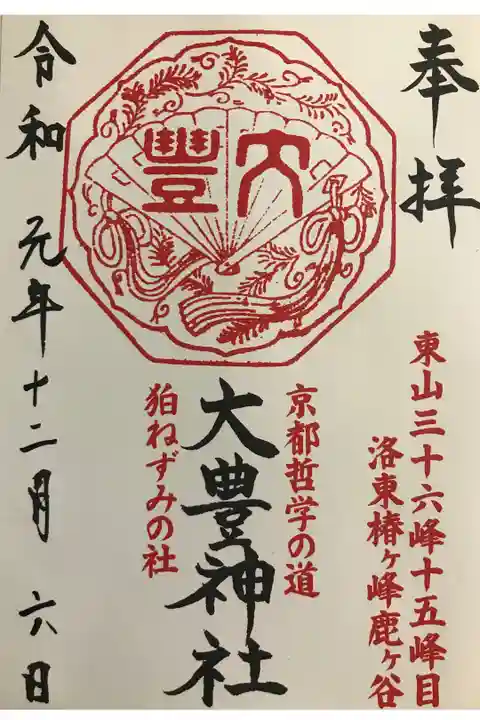 奉拝
東山三十六峰十五峰目
洛東椿ヶ峰鹿ヶ谷
大豊
京都哲学の道
大豊神社
狛ねずみの社
令和元年十二月六日